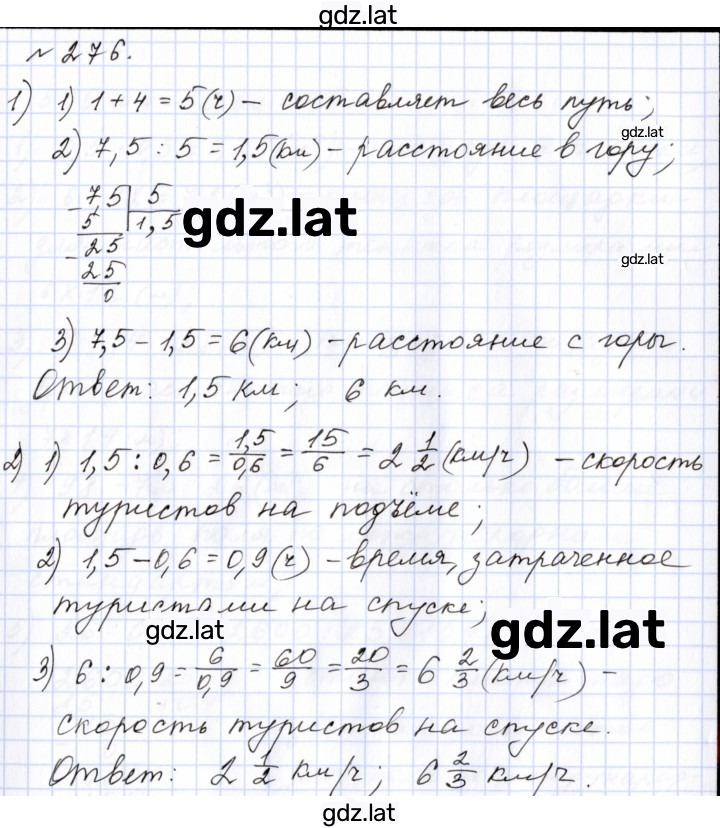 gdz.lat
№ 276.
1) 1) 1 + 4 = 5 (ч) – составляет весь путь;
gdz.lat
2) 7,5 : 5 = 1,5 (км) – расстояние в гору;
- 7,5 | 5
5 | 1,5
gdz.lat
- 25
25
0
gdz.lat
3) 7,5 – 1,5 = 6 (км) – расстояние с горы.
Ответ: 1,5 км; 6 км.
2) 1) 1,5 : 0,6 = 1,5/0,6 = 15/6 = 2 1/2 (км/ч) – скорость
туристов на подъёме;
2) 1,5 – 0,6 = 0,9 (ч) – время, затраченное
туристами на спуске;
gdz.lat
gdz.lat
3) 6 : 0,9 = 6/0,9 = 60/9 = 20/3 = 6 2/3 (км/ч) –
скорость туристов на спуске.
Ответ: 2 1/2 км/ч; 6 2/3 км/ч.
gdz.lat